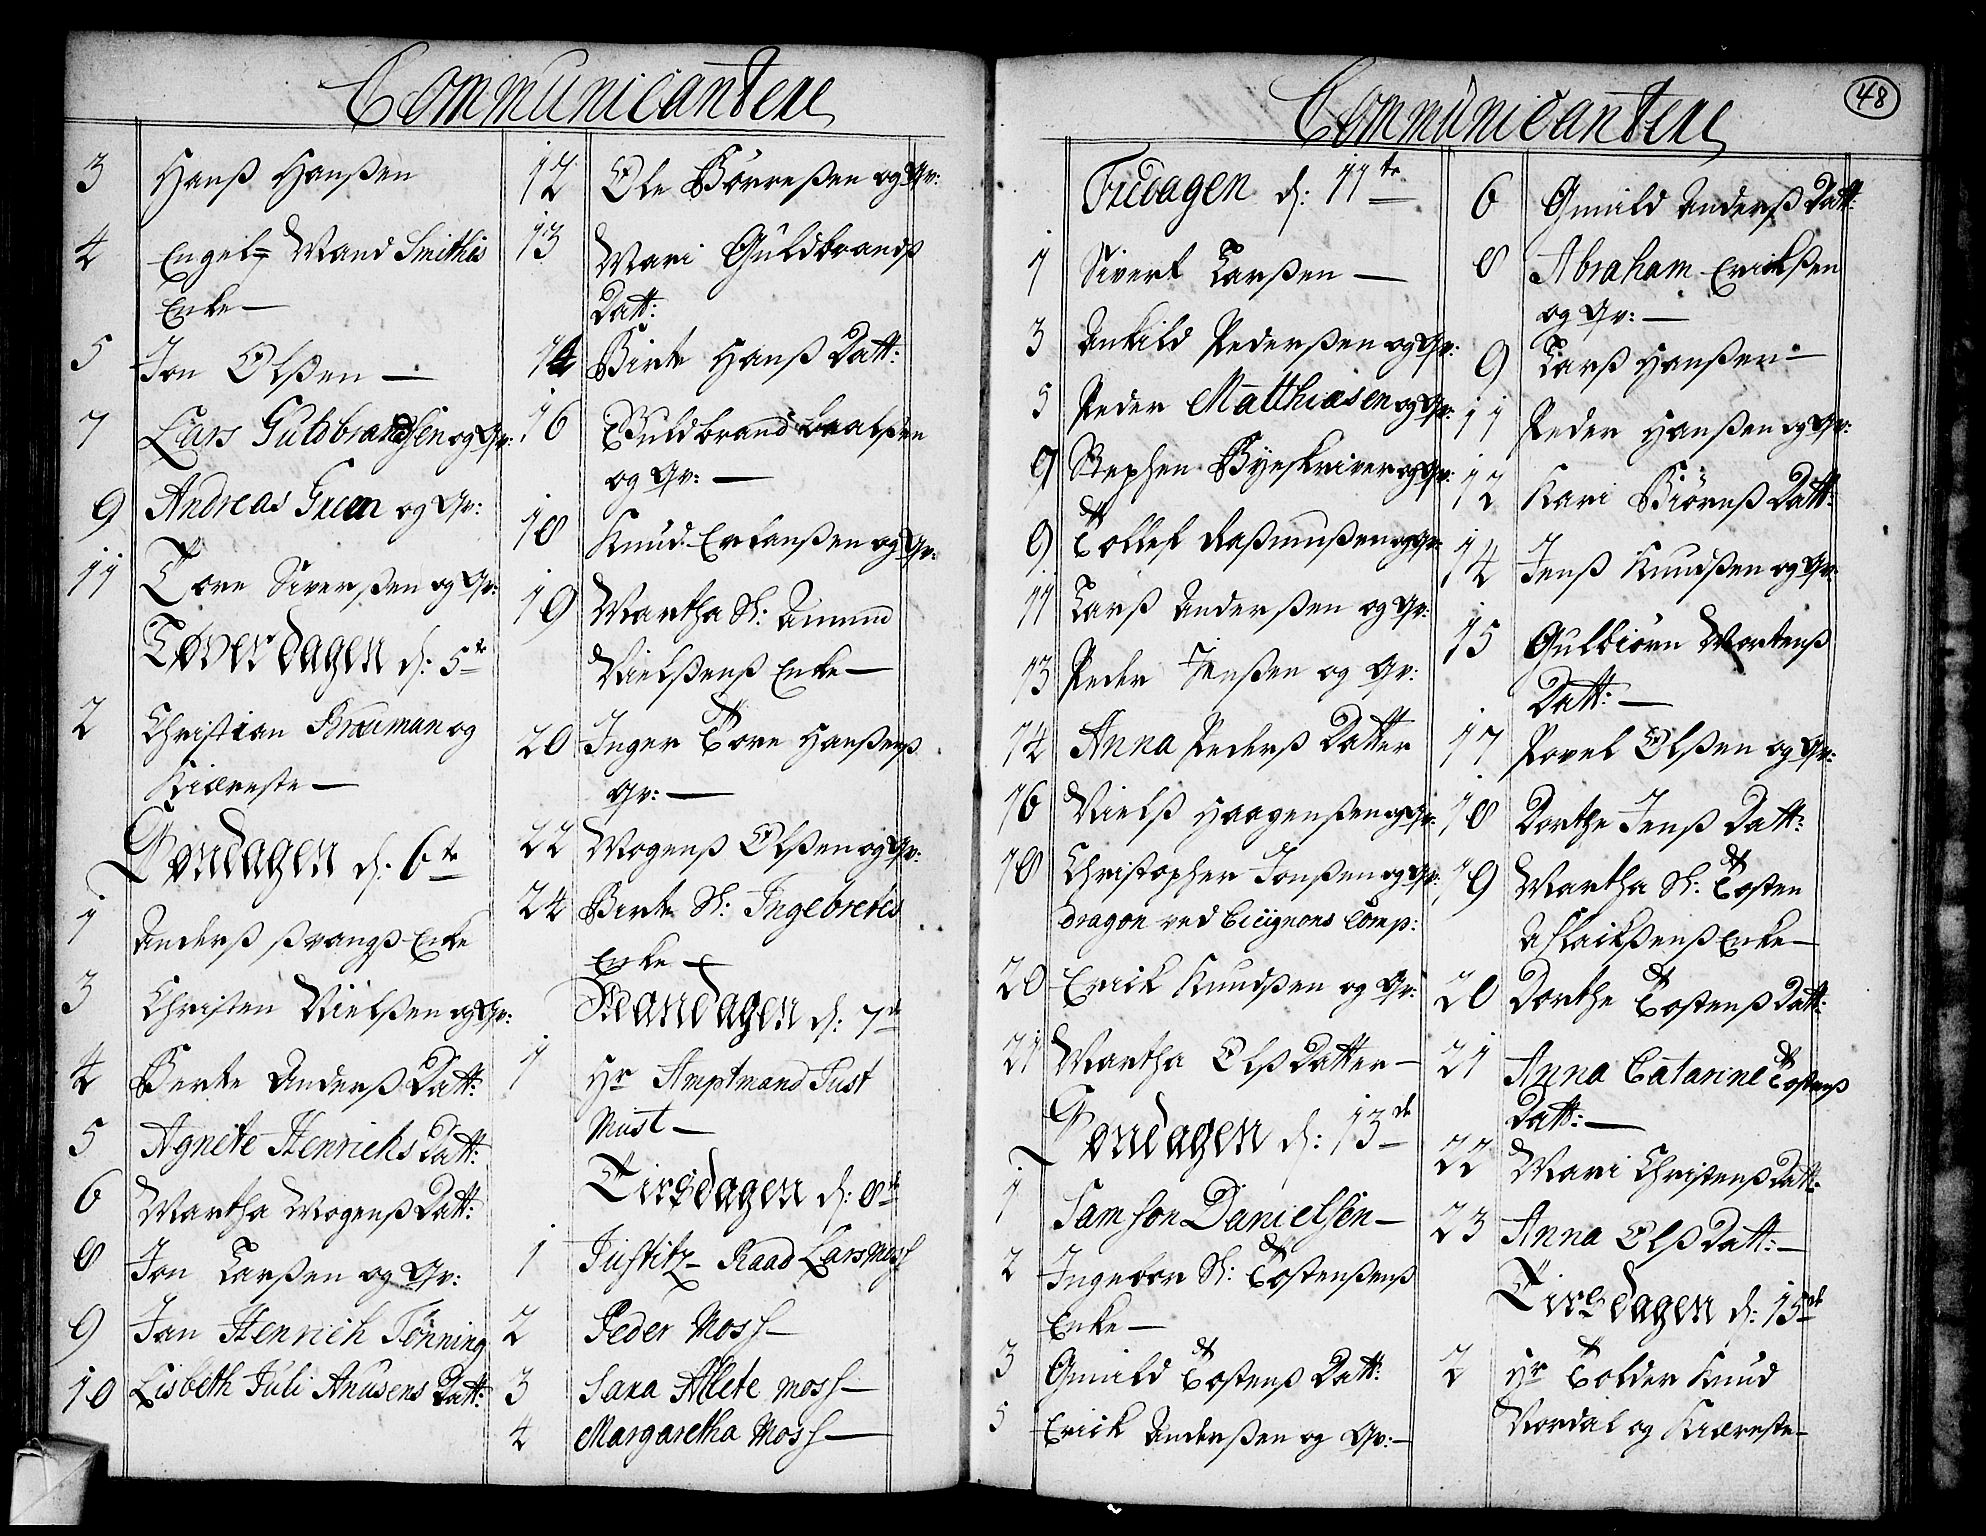 Communicantere
3 Hanß Hanßen
4 Engel= Mand Smithis
Enke —
5 Jon Olßen —
7 Lars Guldbrandsen og Qv:
9 Andreas Green og Qv:
11 Tore Siverßen og Qv:
Løverdagen d: 5te
2 Christian Brauman og
Kiæreste —
Søndagen d: 6te
1 Anderß Svangs Enke
3 Christen Nielßen og Qv:
4 Berte Anderß Datt:
5 Agnete Henrichs Datt:
6 Martha Mogenß Datt:
8 Jon Larßen og Qv:
9 Jan Henrich Tønning
10 Lisbeth Juli Anusens Datt:
12 Ole Børreßen og Qv:
13 Mari Guldbrandß
Datt:
14 Birte Hanß Datt:
16 Guldbrand
og Qv: —
18 Knud Erlanßen og Qv:
19 Martha Sl: Amund
Nielßenß Enke —
20 Inger Tore Hanßenß
Qv: —
22 Mogenß Olßen og Qv:
24 Birte Sl: Ingebrets
Enke —
Mandagen d: 7de
1 Hr Amptmand Just
Must —
Tirsdagen d: 8de
1 Justitz- Raad Lars Moss
2 Peder Moss —
3 Sara Alete Moss —
4 Margaretha Moss —
Communicantere
48
Fredagen d: 11te
1 Sivert Larßen —
3 Ankild Pederßen og Qv:
5 Peder Matthiasen og Qv:
9 Stephen Byeskriver og Qv:
9 Tollef Raßmußen og Qv:
11 Larß Anderßen og Qv:
13 Peder Jenßen og Qv:
14 Anna Pederß Datter
16 Nielß Haagenßen og Qv:
18 Christopher Jonßen og Qv:
dragon ved Cicignons Comp:
20 Erick Knudßen og Qv:
21 Martha Olß Datter —
Søndagen d: 13de
1 Samson Danielsen —
2 Ingebor Sl: Tostenßenß
Enke —
3 Gunild Tostenß Datt:
5 Erick Anderßen og Qv: —
6 Gunild Anderß Datt:
8 Abraham Erickßen
og Qv: —
9 Larß Hanßen —
11 Peder Hanßen og Qv:
12 Kari Biørnß Datt:
14 Jenß Knudßen og Qv:
15 Gulbiørn Mortenß
Datt: —
17 Povel Olßen og Qv:
18 Dorthe Jenß Datt:
19 Martha Sl: Tosten
Aslackßenß Enke —
20 Dorthe Tostenß Datt:
21 Anna Catarine Tostenß
Datt: —
22 Mari Christenß Datt:
23 Anna Olß Datt: —
Tirsdagen d: 15de
2 Hr Tolder Knud
Nordal og Kiæreste —